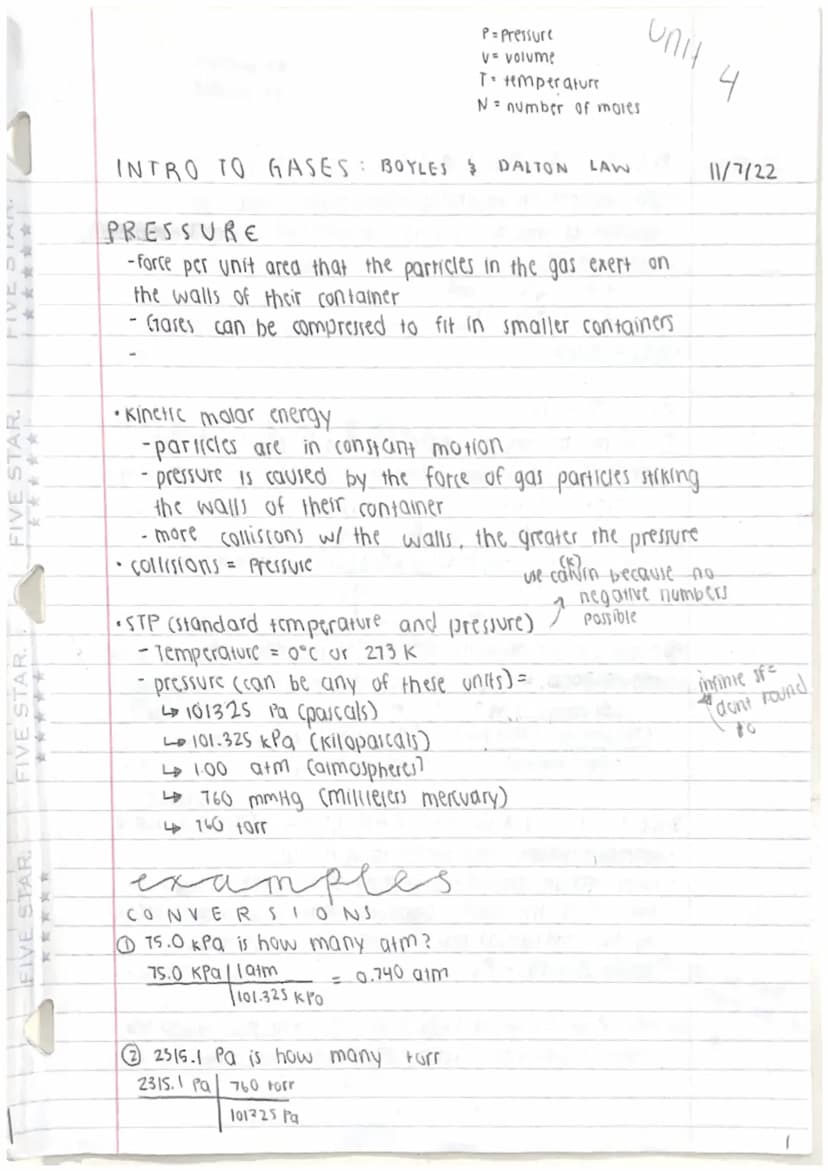 P = Pressure
V = volume
T = temperature
N = number of moles
Unit 4
INTRO TO GASES: BOYLES & DALTON LAW 11/7/22
PRESSURE
-force per unit area that the particles in the gas exert on
the walls of their container
- Gases can be compressed to fit in smaller containers
-
• Kinetic molar energy
- particles are in constant motion
- pressure is caused by the force of gas particles striking
the walls of their container
- more collisions w/ the walls, the greater the pressure
• collisions = Pressure
(K)
use because no
negative numbers
possible
• STP (standard temperature and pressure)
- Temperature = 0°C or 273 K
- pressure (can be any of these units) =
↳ 101325 Pa (pascals)
↳ 101.325 kPa (kilopascals)
↳ 1.00 atm (atmospheres)
↳ 760 mmHg (millileters mercuary)
↳ 760 torr
infinite sf =
dont round
to
examples
CONVERSIONS
① 75.0 kPa is how many atm?
75.0 kPa | 1 atm = 0.740 atm
101.325 kPa
② 2315.1 Pa is how many torr
2315.1 Pa | 760 torr
101325 Pa
1
FIVE STAR.
FIVE STAR.
FIVE STAR.
FIVE STAR.